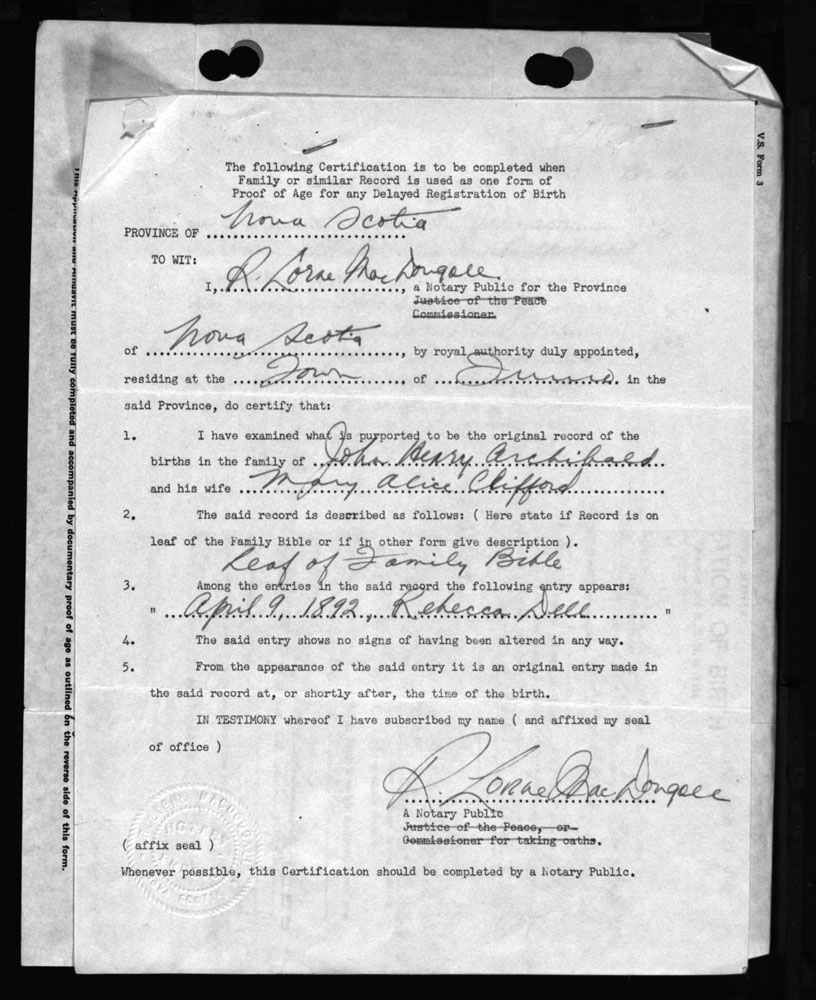 V.S. Form 3
The following Certification is to be completed when
Family or similar Record is used as one form of
Proof of Age for any Delayed Registration of Birth
PROVINCE OF Nova Scotia
TO WIT:
I, R. Lorne MacDougall, a Notary Public for the Province
Justice of the Peace
Commissioner
of Nova Scotia, by royal authority duly appointed,
residing at the Town of in the
said Province, do certify that:
1. I have examined what is purported to be the original record of the
births in the family of John Henry Archibald
and his wife Mary Alice Clifford
2. The said record is described as follows: ( Here state if Record is on
leaf of the Family Bible or if in other form give description ).
Leaf of Family Bible
3. Among the entries in the said record the following entry appears:
" April 9, 1892, Rebecca Dell "
4. The said entry shows no signs of having been altered in any way.
5. From the appearance of the said entry it is an original entry made in
the said record at, or shortly after, the time of the birth.
IN TESTIMONY whereof I have subscribed my name ( and affixed my seal
of office )
R. Lorne MacDougall
A Notary Public
Justice of the Peace, or
Commissioner for taking oaths.
( affix seal )
Whenever possible, this Certification should be completed by a Notary Public.
This Application and Affidavit must be fully completed and accompanied by documentary proof of age as outlined on the reverse side of this form.